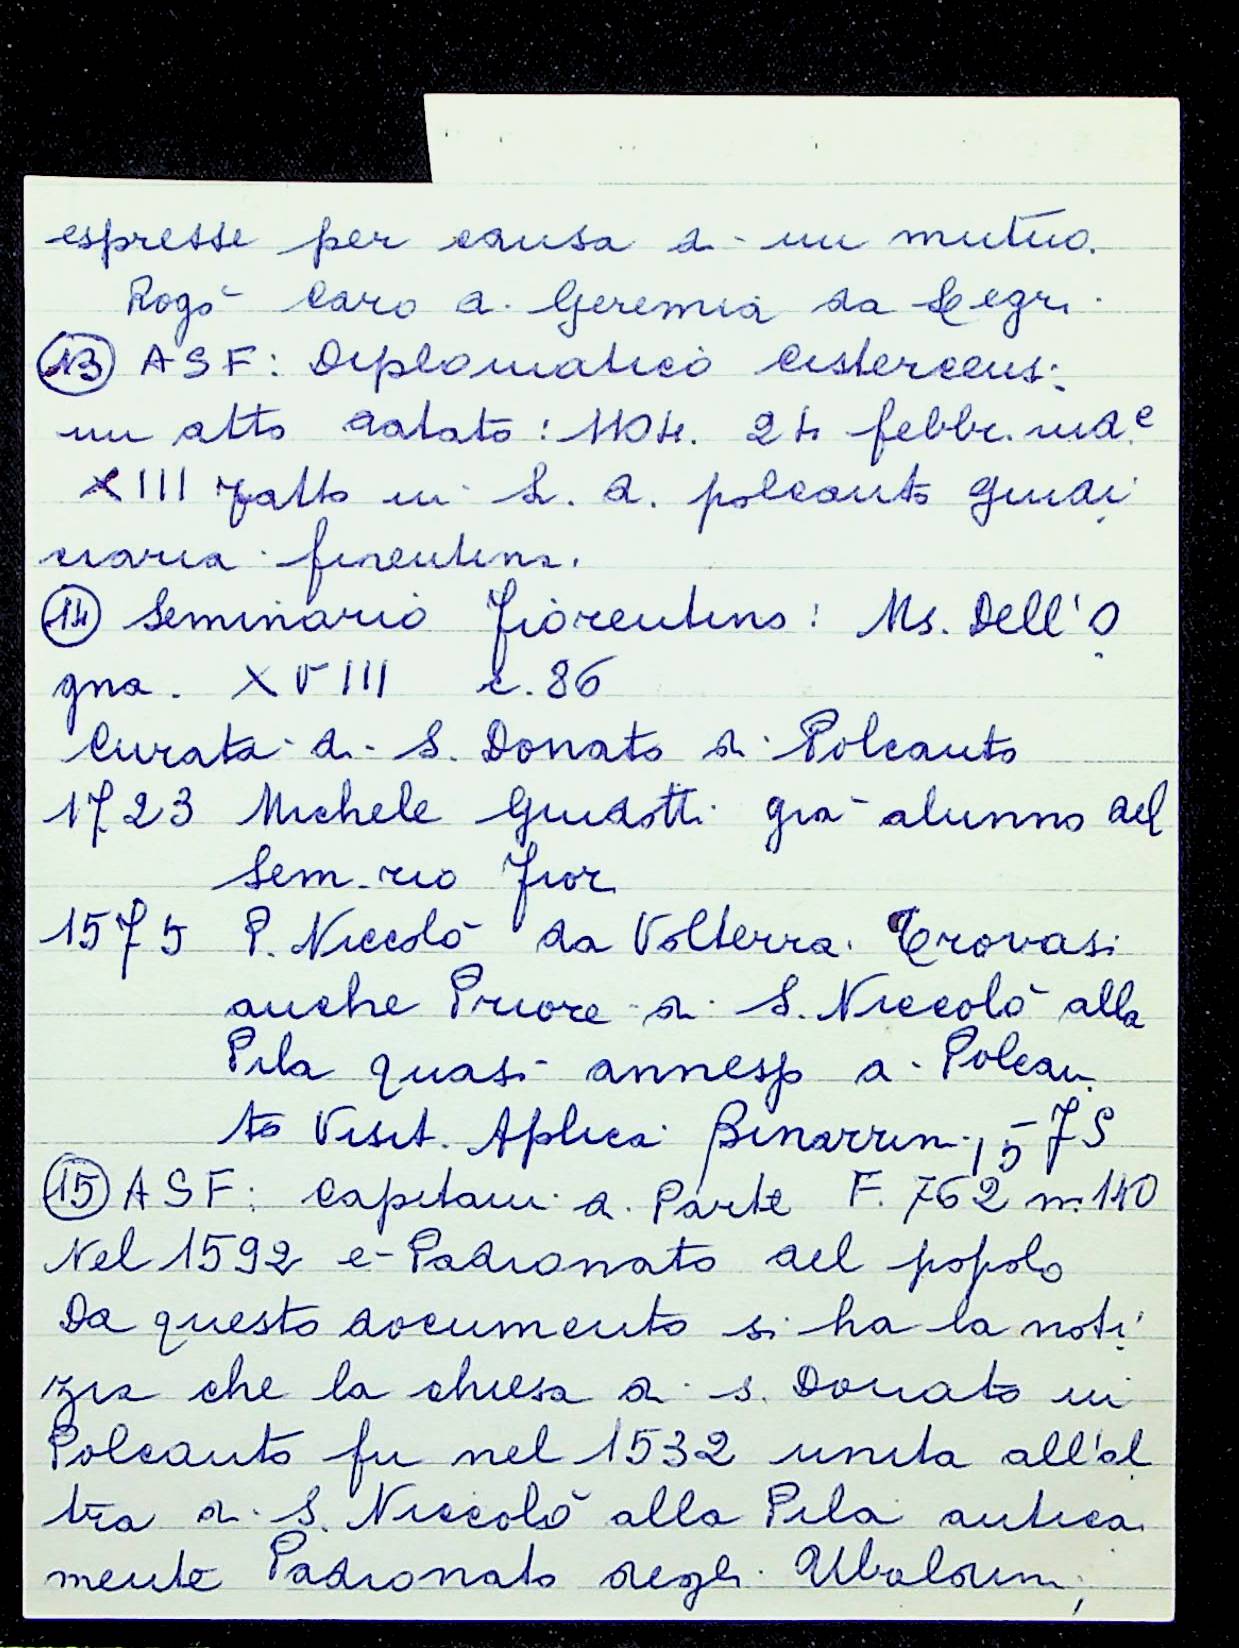 espresse per causa di un mutuo.
Rogò Caro di Geremia da Legri.
13 ASF: Diplomatico Cistercensi:
un atto datato: 1104. 24 febbr. ind.e
XIII fatto in L. d. polcanto giudi
ciaria fiorentina.
14 Seminario Fiorentino: Ms. Dell'O
gna. XVIII c. 86
Curata di S. Donato di Polcanto
1723 Michele Guidotti già alunno del
Sem.rio Fior.
1575 P. Niccolò da Volterra. Trovasi
anche Priore di S. Niccolò alla
Pila quasi annesso a Polcan
to Visit. Aplica Binarrini 1575
15 ASF: Capitani di Parte F. 762 n. 140
Nel 1592 è Padronato del popolo
Da questo documento si ha la noti
zia che la chiesa di S. Donato in
Polcanto fu nel 1532 unita all'al
tra di S. Niccolò alla Pila antica
mente Padronato degli Ubaldini,